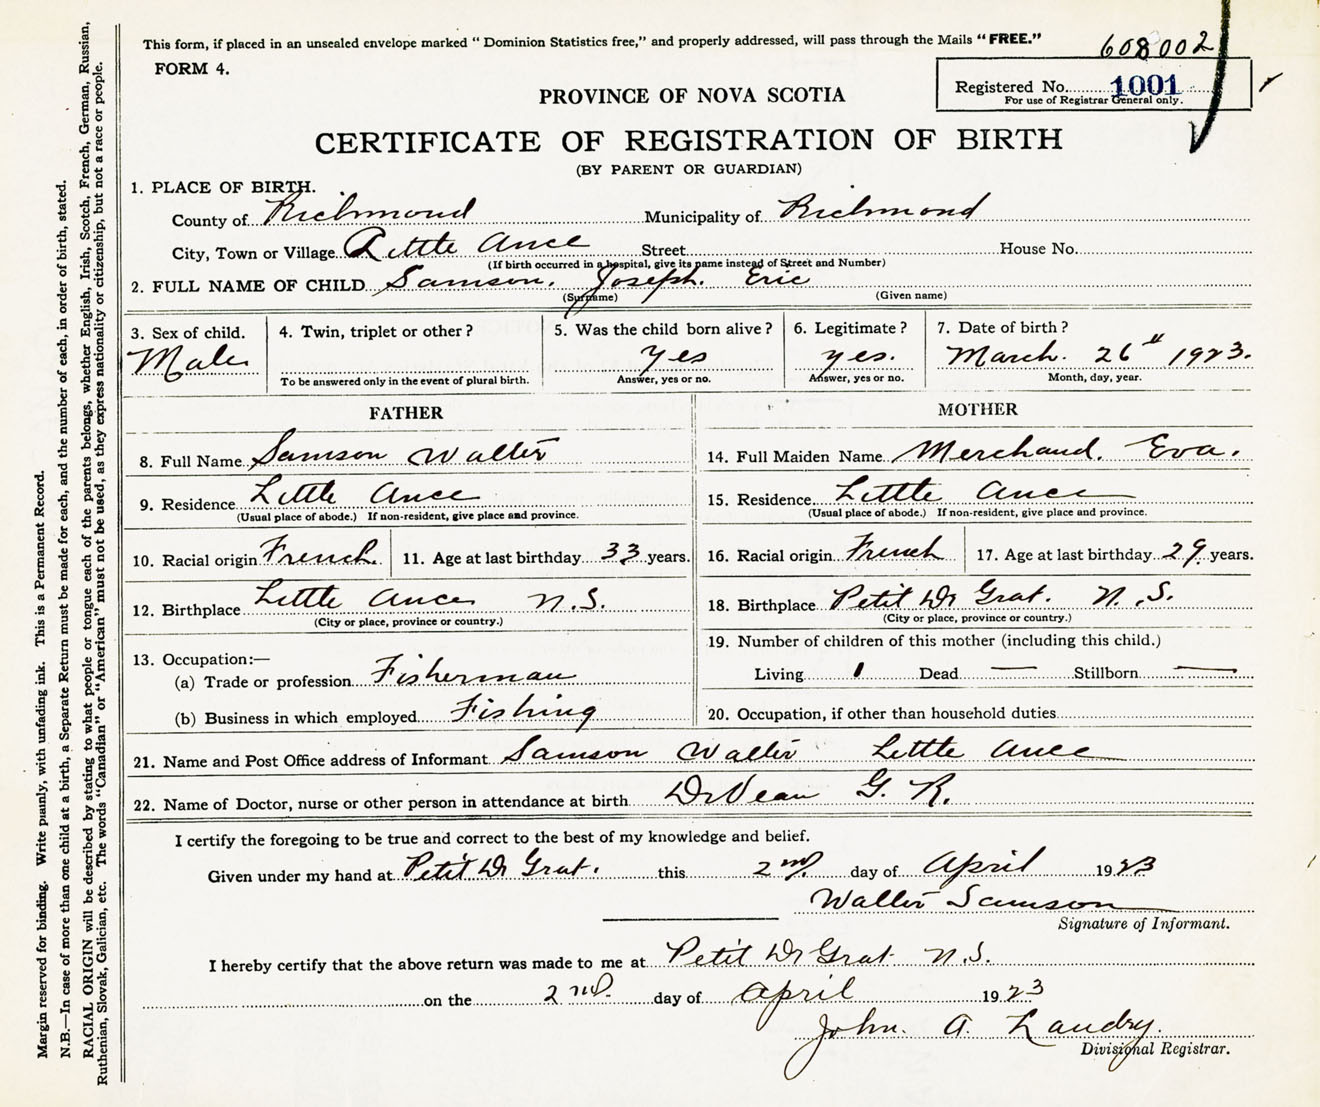 This form, if placed in an unsealed envelope marked "Dominion Statistics free," and properly addressed, will pass through the Mails "FREE."
608002
FORM 4.
Registered No. 1001
For use of Registrar General only.
PROVINCE OF NOVA SCOTIA
CERTIFICATE OF REGISTRATION OF BIRTH
(BY PARENT OR GUARDIAN)
1. PLACE OF BIRTH.
County of Richmond Municipality of Richmond
City, Town or Village Little Ance Street House No.
(If birth occurred in a hospital, give its name instead of Street and Number)
2. FULL NAME OF CHILD Samson. Joseph. Eric
(Surname) (Given name)
3. Sex of child. 4. Twin, triplet or other? 5. Was the child born alive? 6. Legitimate? 7. Date of birth?
Male yes yes. March. 26th 1923.
To be answered only in the event of plural birth. Answer, yes or no. Answer, yes or no. Month, day, year.
FATHER MOTHER
8. Full Name Samson Walter 14. Full Maiden Name Merchand. Eva.
9. Residence Little Ance 15. Residence Little Ance
(Usual place of abode.) If non-resident, give place and province. (Usual place of abode.) If non-resident, give place and province.
10. Racial origin French. 11. Age at last birthday 33 years. 16. Racial origin French 17. Age at last birthday 29 years.
12. Birthplace Little Ance N.S. 18. Birthplace Petit De Grat. N.S.
(City or place, province or country.) (City or place, province or country.)
13. Occupation:— 19. Number of children of this mother (including this child.)
(a) Trade or profession Fisherman Living 1 Dead — Stillborn —
(b) Business in which employed Fishing 20. Occupation, if other than household duties
21. Name and Post Office address of Informant Samson Walter Little Ance
22. Name of Doctor, nurse or other person in attendance at birth DeVean G. R.
I certify the foregoing to be true and correct to the best of my knowledge and belief.
Given under my hand at Petit De Grat. this 2nd. day of April 1923
Walter Samson
Signature of Informant.
I hereby certify that the above return was made to me at Petit De Grat N.S.
on the 2nd. day of April 1923
John. A. Landry.
Divisional Registrar.
Margin reserved for binding. Write plainly, with unfading ink. This is a Permanent Record.
N.B.—In case of more than one child at a birth, a Separate Return must be made for each, and the number of each, in order of birth, stated.
RACIAL ORIGIN will be described by stating to what people or tongue each of the parents belongs, whether English, Irish, Scotch, French, German, Russian,
Ruthenian, Slovak, Galician, etc. The words "Canadian" or "American" must not be used, as they express nationality or citizenship, but not a race or people.